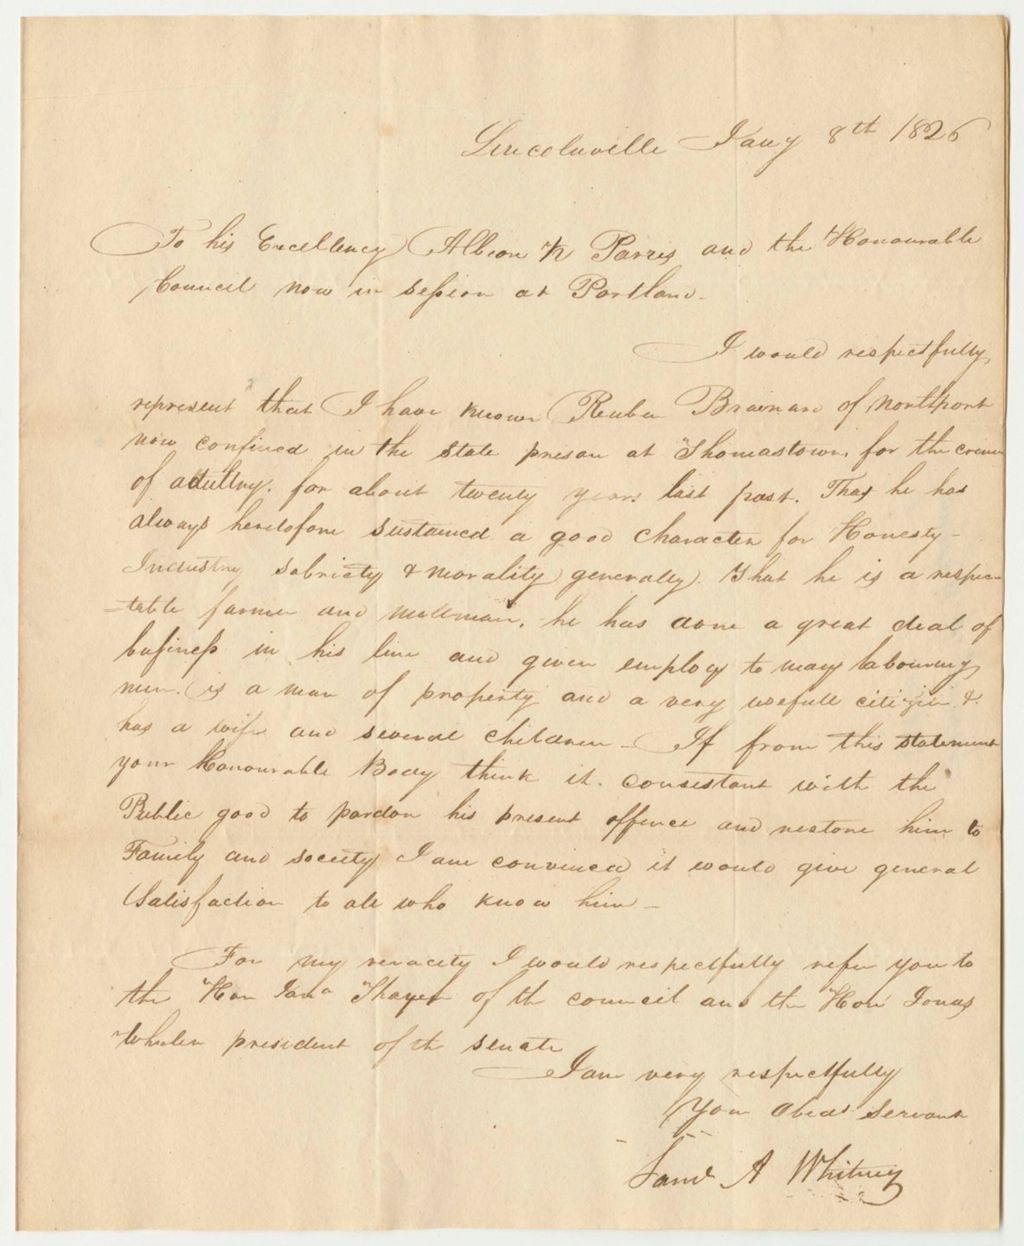 Lincolnville Jany 8th 1826
To his Excellency Albion K Parris and the Honourable
Council now in session at Portland.
I would respectfully,
represent that I have known Reuben Brainard of Northport
now confined in the State prison at Thomastown, for the crime
of adultry. for about twenty years last past. That he has
always heretofore sustained a good character for Honesty-
Industry, sobriety & morality generally. That he is a respec-
=table farmer and millman, he has done a great deal of
business in his line and given employ to many labouring
men. is a man of property and a very usefull citizen &
has a wife and several children - If from this statement
your Honourable Body think it. consistant with the
Public good to pardon his present offence and restore him to
Family and society I am convinced it would give general
Satisfaction to all who know him -
For my veracity I would respectfully refer you to
the Hon Thayer of th council and the Hon Jonas
Wheler president of th senate
I am very respectfully
Your Obedt Servant
Saml A Whitney